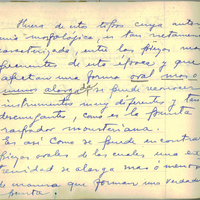 Fuera de estos tipos cuya auton
mía morfológica es tan netamente
caracterizada, entre las piezas mas
frecuentes de esta época y que
afectan una forma oval mas o
menos alargada se puede reconocer
instrumentos muy diferentes y tan
descollantes, como es la punta
raspador mousteriana.
Es así como se puede encontrar
piezas ovales de las cuales una ex
tremidad se alarga mas o menos
de manera que forman una verdade
punta